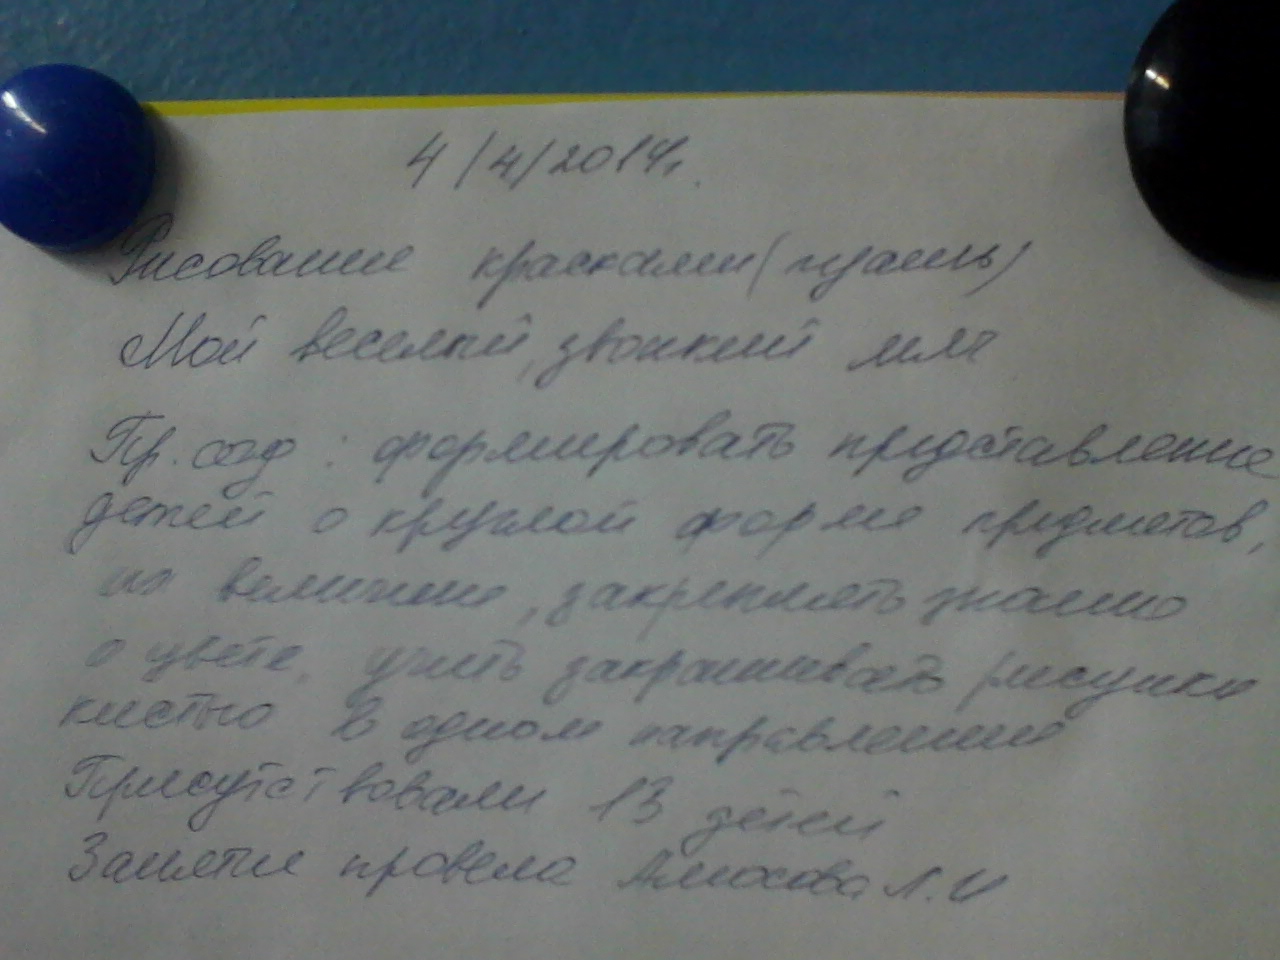 4/4/2014г.
Рисование красками (гуашь)
Мой веселый, звонкий мяч
Пр. сод: формировать представление
детей о круглой форме предметов,
их величине, закреплять знание
о цвете, учить закрашивать рисунки
кистью в одном направлении
Присутствовали 13 детей
Занятие провела Л.И